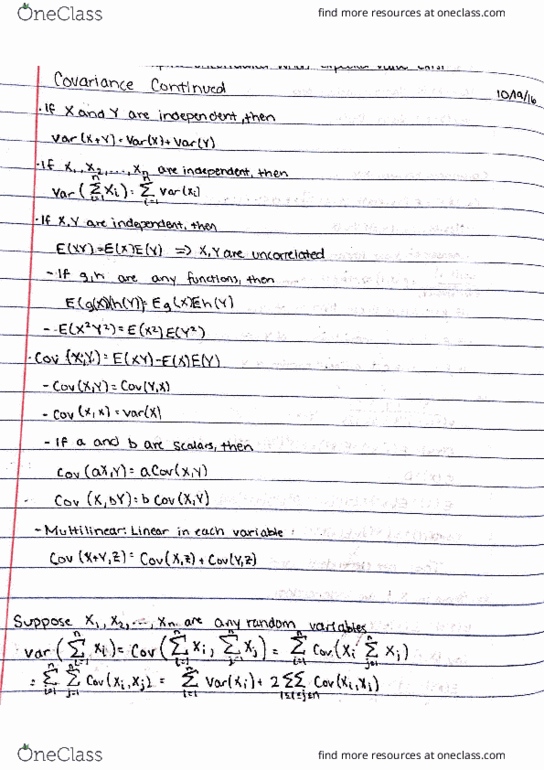 OneClass
find more resources at oneclass.com
Covariance Continued
10/19/16
· If X and Y are independent, then
Var(X+Y) = Var(X) + Var(Y)
· If X₁, X₂, ..., Xn are independent, then
Var(∑ᵢ₌₁ⁿ Xi) = ∑ᵢ₌₁ⁿ Var(Xi)
· If X,Y are independent, then
E(XY) = E(X)E(Y) ⇒ X,Y are uncorrelated
- If g,h are any functions, then
E(g(X)h(Y)) = Eg(X)Eh(Y)
- E(X²Y²) = E(X²)E(Y²)
· Cov(X,Y) = E(XY) - E(X)E(Y)
- Cov(X,Y) = Cov(Y,X)
- Cov(X,X) = Var(X)
- If a and b are scalars, then
Cov(aX,Y) = a Cov(X,Y)
Cov(X,bY) = b Cov(X,Y)
- Multilinear: Linear in each variable
Cov(X+Y,Z) = Cov(X,Z) + Cov(Y,Z)
Suppose X₁, X₂, ..., Xn are any random variables
Var(∑ᵢ₌₁ⁿ Xi) = Cov(∑ᵢ₌₁ⁿ Xi, ∑ⱼ₌₁ⁿ Xj) = ∑ᵢ₌₁ⁿ Cov(Xi ∑ⱼ₌₁ⁿ Xj)
= ∑ᵢ₌₁ⁿ ∑ⱼ₌₁ⁿ Cov(Xi, Xj) = ∑ᵢ₌₁ⁿ Var(Xi) + 2∑∑ Cov(Xi, Xj)
OneClass
find more resources at oneclass.com